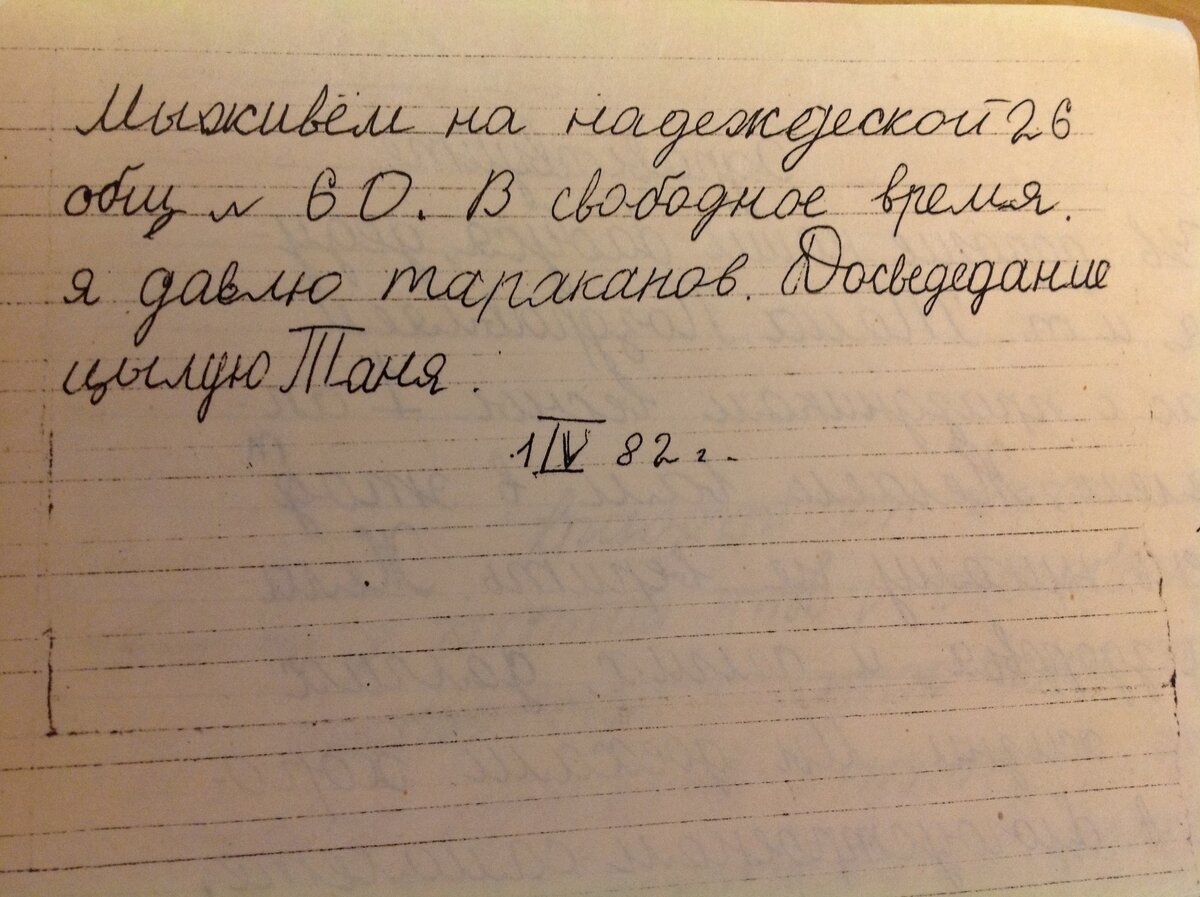 Мыживём на надеждеской 26
общ № 60. В свободное время.
я давлю тараканов. Досведедание
цылую Таня.
1 IV 82 г.